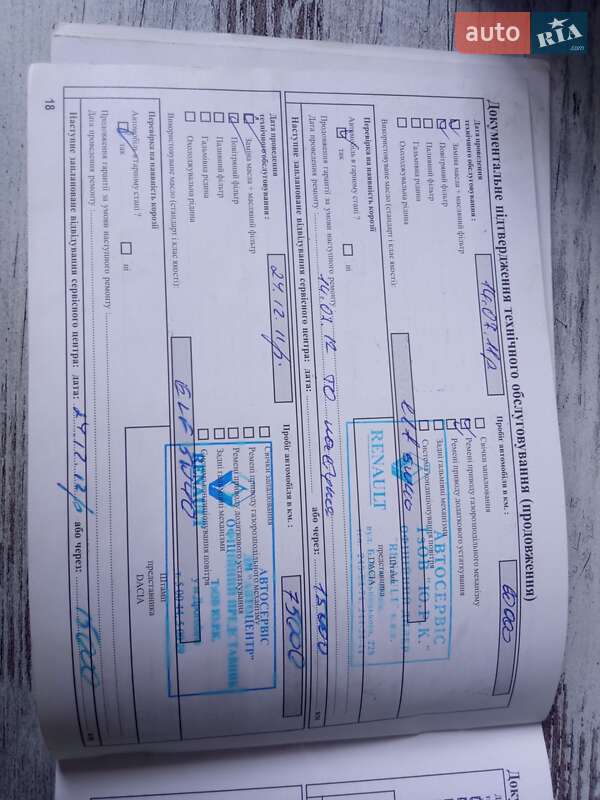 auto RIA .com
Документальне підтвердження технічного обслуговування (продовження)
Дата проведення технічного обслуговування :
14.07.11р
Пробіг автомобіля в км. :
60 000
Заміна масла + масляний фільтр
Повітряний фільтр
Паливний фільтр
Гальмівна рідина
Охолоджувальна рідина
Свічки запалювання
Ремені приводу газорозподільного механізму
Ремені приводу додаткового устаткування
Задні гальмівні механізми
Система кондиціонування повітря
Використовуване масло (стандарт і клас якості):
АВТОСЕРВІС
ТзОВ "Ю.Р.К."
RENAULT
представника
DACIA
Перевірка на наявність корозії
Автомобіль в гарному стані ?
так
ні
Продовження гарантії за умови наступного ремонту
Дата проведення ремонту
Наступне заплановане відвідування сервісного центра: дата:
14.07.12
або через:
15 000
Дата проведення технічного обслуговування :
24.12.11р.
Пробіг автомобіля в км. :
75000
Заміна масла + масляний фільтр
Повітряний фільтр
Паливний фільтр
Гальмівна рідина
Охолоджувальна рідина
Свічки запалювання
Ремені приводу газорозподільного механізму
Ремені приводу додаткового устаткування
Задні гальмівні механізми
Система кондиціонування повітря
Використовуване масло (стандарт і клас якості):
ELF
АВТОСЕРВІС
Штамп
представника
DACIA
Перевірка на наявність корозії
Автомобіль в гарному стані ?
так
ні
Продовження гарантії за умови наступного ремонту
Дата проведення ремонту
Наступне заплановане відвідування сервісного центра: дата:
24.12.12р
або через:
15000
18